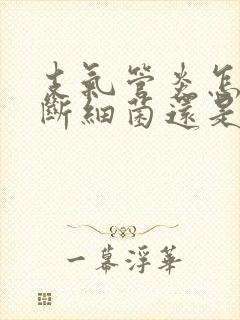 支氣管炎怎
斷細菌還是
一幕浮華